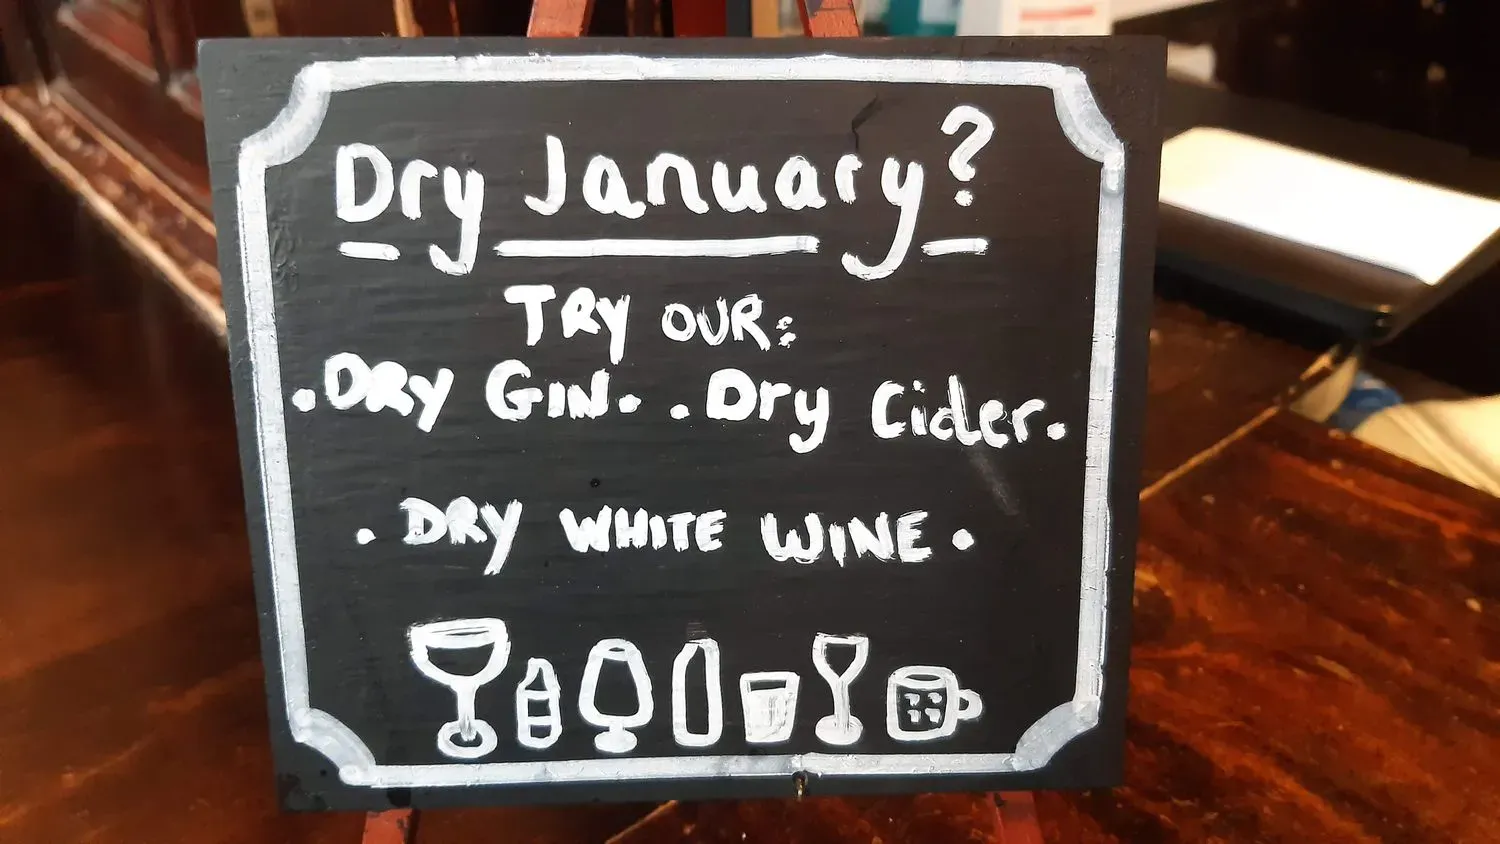 Dry January?
TRY OUR:
.DRY GIN. .Dry Cider.
. DRY WHITE WINE .